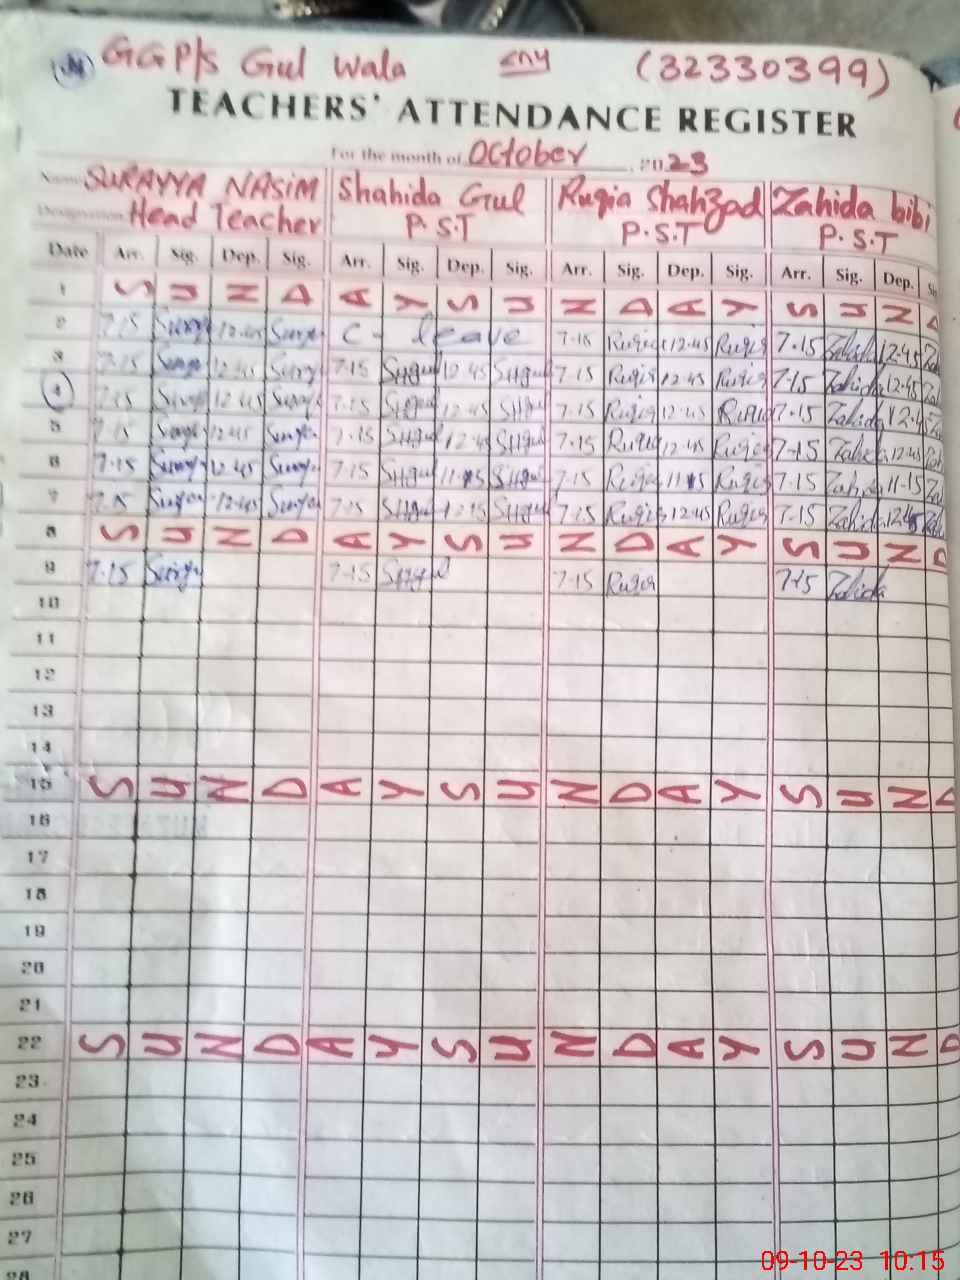 GGP/S Gul Wala (32330399)
TEACHERS' ATTENDANCE REGISTER
For the month of October 2023
Name SURAYYA NASIM Shahida Gul Ruqia Shahzad Zahida bibi
Designation Head Teacher P.S.T P.S.T P.S.T
Date Arr. Sig. Dep. Sig. Arr. Sig. Dep. Sig. Arr. Sig. Dep. Sig. Arr. Sig. Dep.
1 S U N D A Y S U N D A Y S U N D
2 7-15 12-45 C - leave 7-15 Ruqia 12-45 Ruqia 7-15 Zahida 12-45
3 7-15 12-45 7-15 SHgul 12-45 SHgul 7-15 Ruqia 12-45 Ruqia 7-15 Zahida 12-45
4 7-15 12-45 7-15 SHgul 12-45 SHgul 7-15 Ruqia 12-45 Ruqia 7-15 Zahida
5 7-15 12-45 7-15 SHgul 12-45 SHgul 7-15 Ruqia 12-45 Ruqia 7-15 Zahida 12-45
6 7-15 12-45 7-15 SHgul SHgul 7-15 Ruqia Ruqia 7-15 Zahida 11-15
7 7-15 12-45 7-15 SHgul SHgul 7-15 Ruqia 12-45 Ruqia 7-15 Zahida 12-45
8 S U N D A Y S U N D A Y S U N D
9 7-15 7-15 SHgul 7-15 Ruqia 7-15 Zahida
10
11
12
13
14
15 S U N D A Y S U N D A Y S U N D
16
17
18
19
20
21
22 S U N D A Y S U N D A Y S U N D
23
24
25
26
27
28
09-10-23 10:15